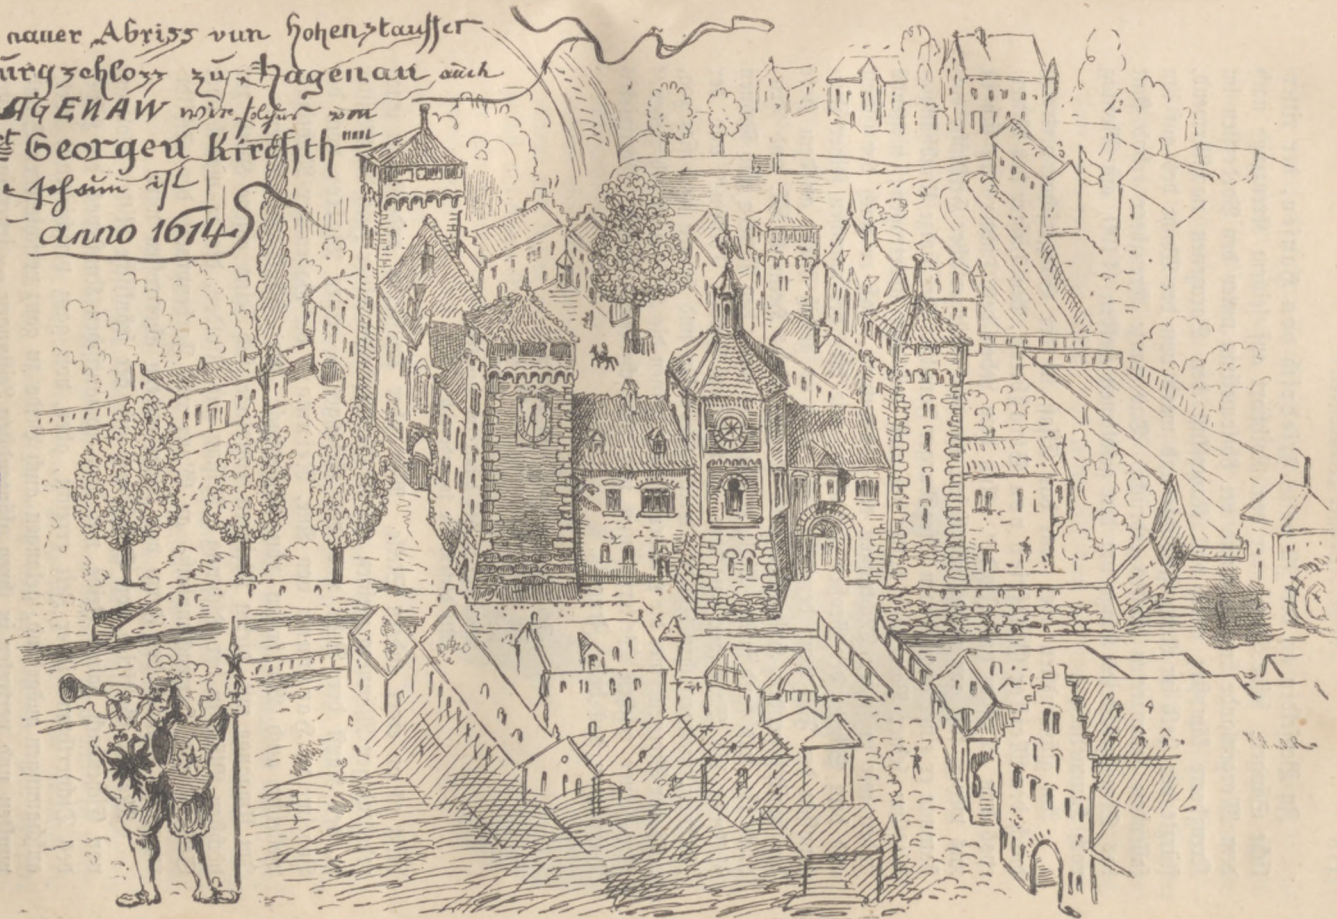 nauer Abriss vun Hohenstauffer
urgschloss zu Hagenau auch
AGENAW wie solches von
Georgen Kirchth
schaun ist
anno 1614